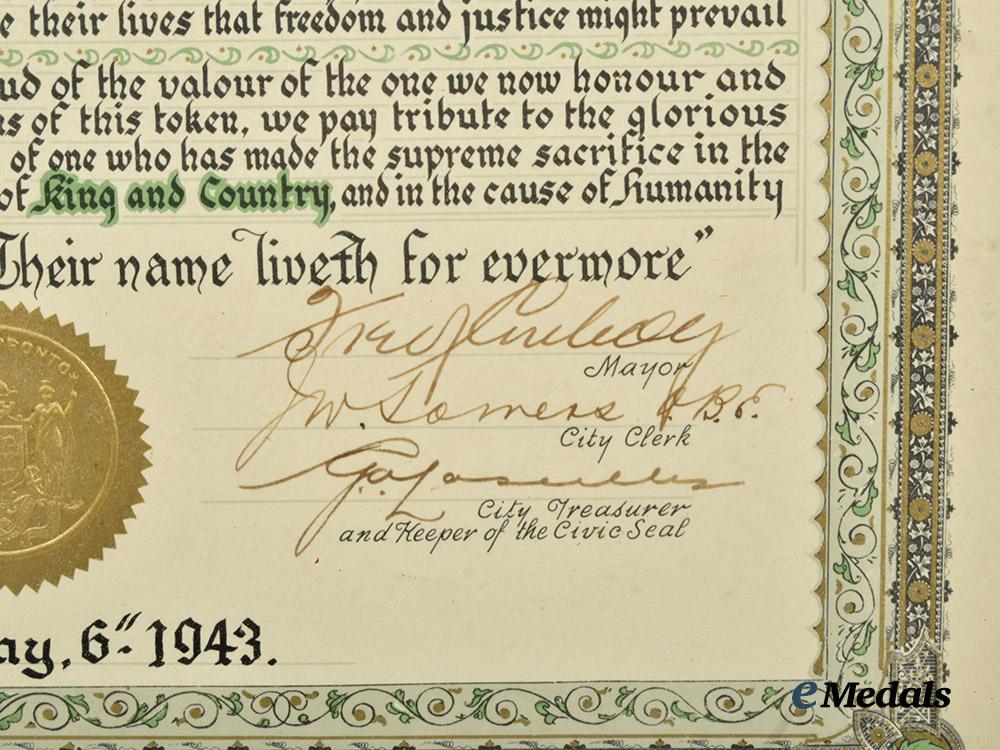 e their lives that freedom and justice might prevail
ud of the valour of the one we now honour and
ns of this token, we pay tribute to the glorious
of one who has made the supreme sacrifice in the
of King and Country, and in the cause of Humanity
Their name liveth for evermore"
TORONTO
Mayor
J.W. Somers O.B.E.
City Clerk
G.A. Lascelles
City Treasurer
and Keeper of the Civic Seal
ay, 6" 1943.
eMedals